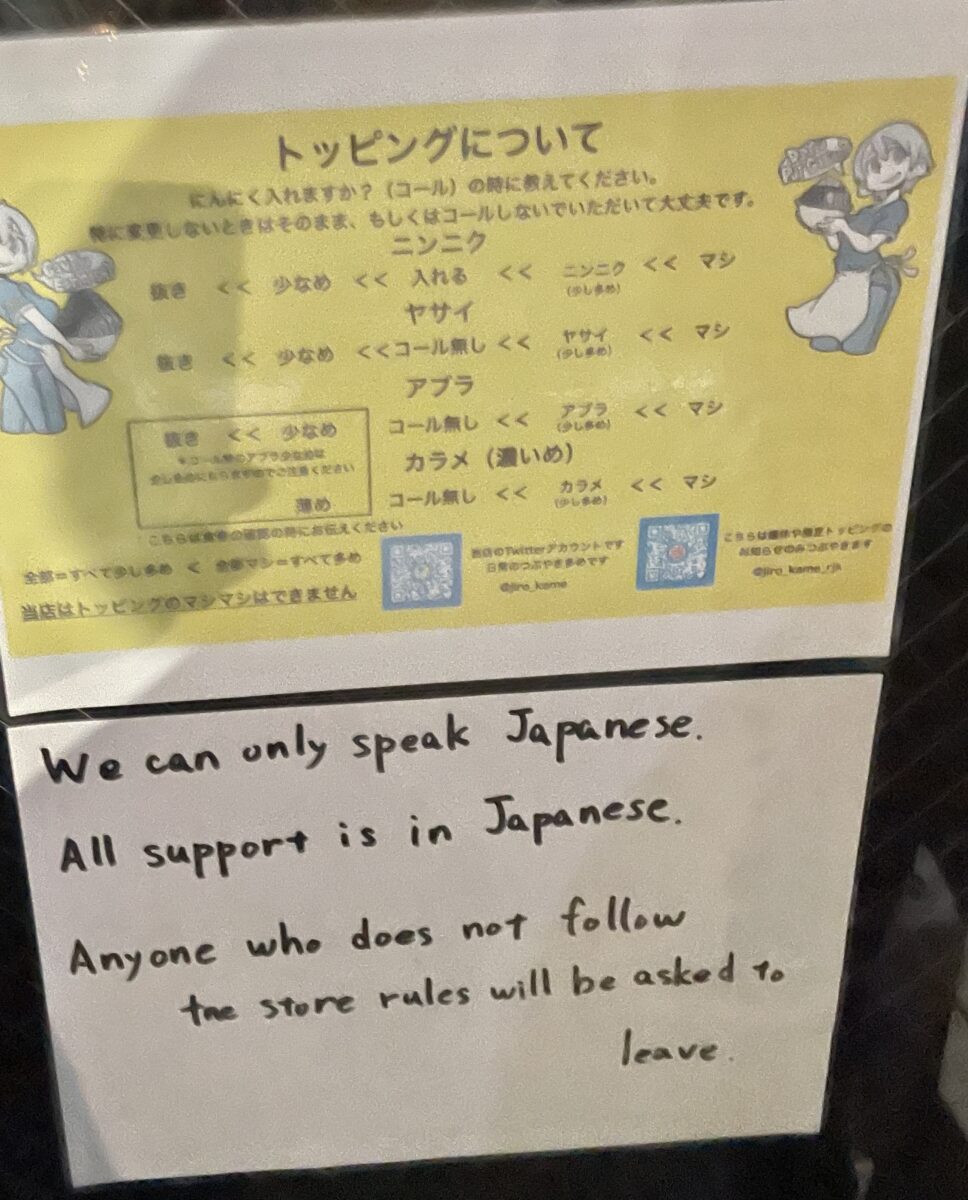 トッピングについて
にんにく入れますか？（コール）の時に教えてください。
特に変更しないときはそのまま、もしくはコールしないでいただいて大丈夫です。
ニンニク
抜き << 少なめ << 入れる << ニンニク << マシ
(少し多め)
ヤサイ
抜き << 少なめ << コール無し << ヤサイ << マシ
(少し多め)
アブラ
抜き << 少なめ
コール無し << アブラ << マシ
(少し多め)
カラメ（濃いめ）
薄め
コール無し << カラメ << マシ
(少し多め)
こちらは食券の確認の時にお伝えください
全部=すべて少し多め < 全部マシ=すべて多め
当店はトッピングのマシマシはできません
当店のTwitterアカウントです
日常のつぶやき多めです
@jiro_kame
こちらは臨休や限定トッピングの
お知らせのみつぶやきます
@jiro_kame_rjk
We can only speak Japanese.
All support is in Japanese.
Anyone who does not follow
tne store rules will be asked to
leave.